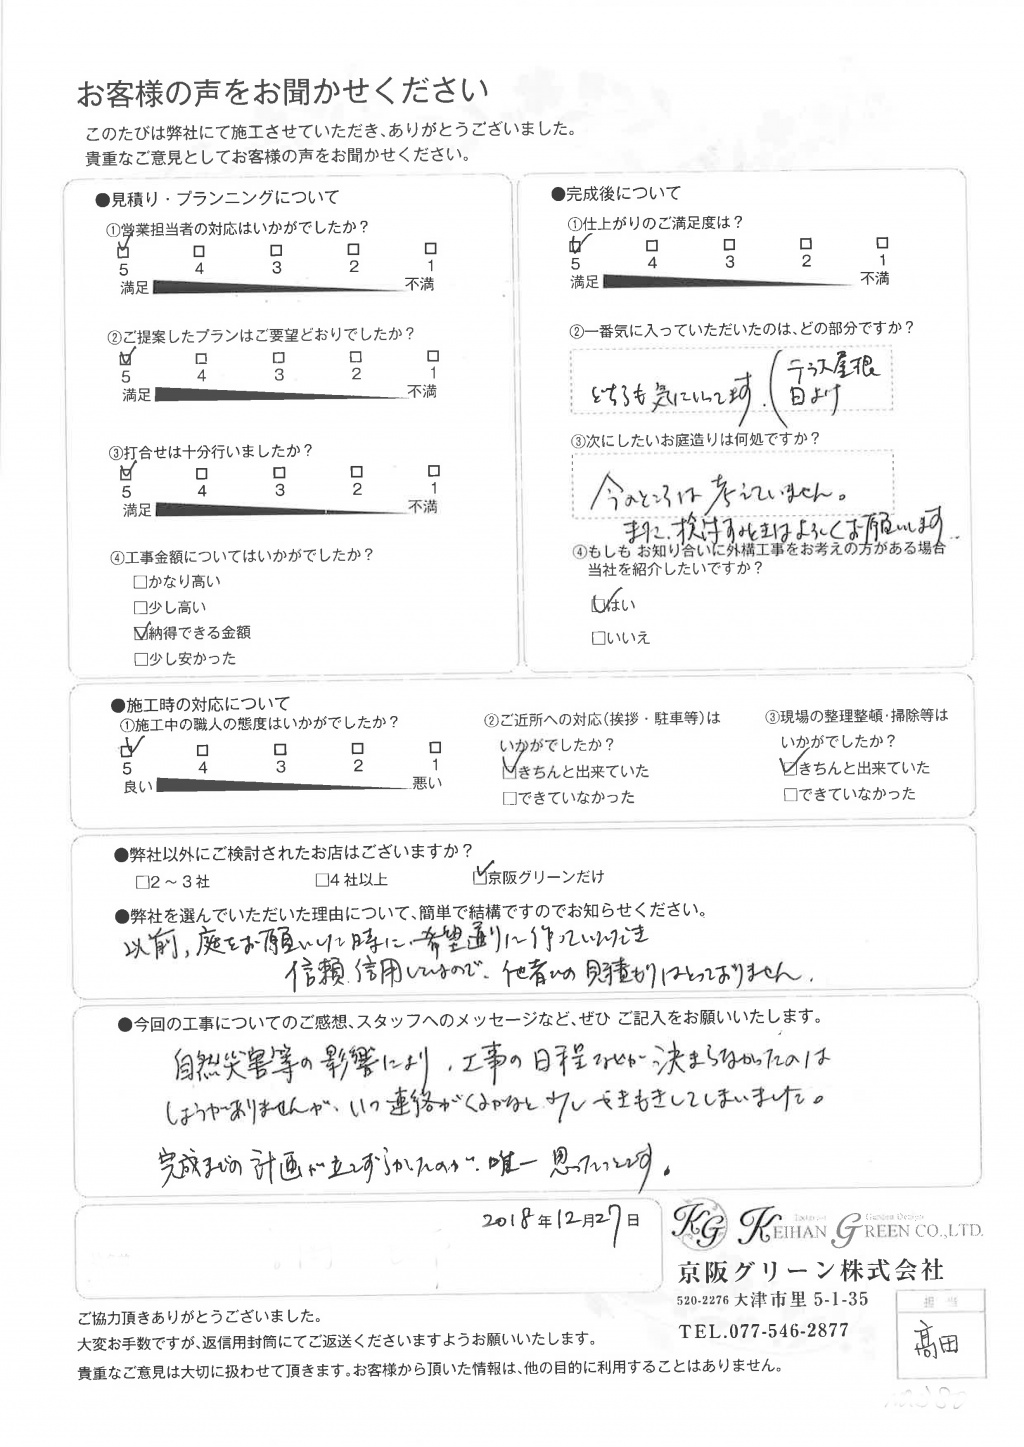 お客様の声をお聞かせください
このたびは弊社にて施工させていただき、ありがとうございました。
貴重なご意見としてお客様の声をお聞かせください。
●見積り・プランニングについて
①営業担当者の対応はいかがでしたか？
5 4 3 2 1
満足 不満
②ご提案したプランはご要望どおりでしたか？
5 4 3 2 1
満足 不満
③打合せは十分行いましたか？
5 4 3 2 1
満足 不満
④工事金額についてはいかがでしたか？
□かなり高い
□少し高い
☑納得できる金額
□少し安かった
●完成後について
①仕上がりのご満足度は？
5 4 3 2 1
満足 不満
②一番気に入っていただいたのは、どの部分ですか？
どちらも気にいってます。(テラス屋根
日よけ
③次にしたいお庭造りは何処ですか？
今のところは考えていません。
また、検討するときはよろしくお願いします
④もしも お知り合いに外構工事をお考えの方がある場合
当社を紹介したいですか？
☑はい
□いいえ
●施工時の対応について
①施工中の職人の態度はいかがでしたか？
5 4 3 2 1
良い 悪い
②ご近所への対応(挨拶・駐車等)は
いかがでしたか？
☑きちんと出来ていた
□できていなかった
③現場の整理整頓・掃除等は
いかがでしたか？
☑きちんと出来ていた
□できていなかった
●弊社以外にご検討されたお店はございますか？
□2～3社 □4社以上 ☑京阪グリーンだけ
●弊社を選んでいただいた理由について、簡単で結構ですのでお知らせください。
以前、庭をお願いした時に、希望通りに作っていただき
信頼、信用しているので、他者の見積もりはとっておりません。
●今回の工事についてのご感想、スタッフへのメッセージなど、ぜひ ご記入をお願いいたします。
自然災害等の影響により、工事の日程などが決まらなかったのは
しょうがありませんが、いつ連絡がくるかなと少しやきもきしてしまいました。
完成までの計画が立てずらかったのが、唯一思ったことです。
2018年12月27日
KG KEIHAN GREEN CO.,LTD.
Exterior Garden Design
京阪グリーン株式会社
520-2276 大津市里 5-1-35
TEL.077-546-2877
担当
髙田
ご協力頂きありがとうございました。
大変お手数ですが、返信用封筒にてご返送くださいますようお願いいたします。
貴重なご意見は大切に扱わせて頂きます。お客様から頂いた情報は、他の目的に利用することはありません。